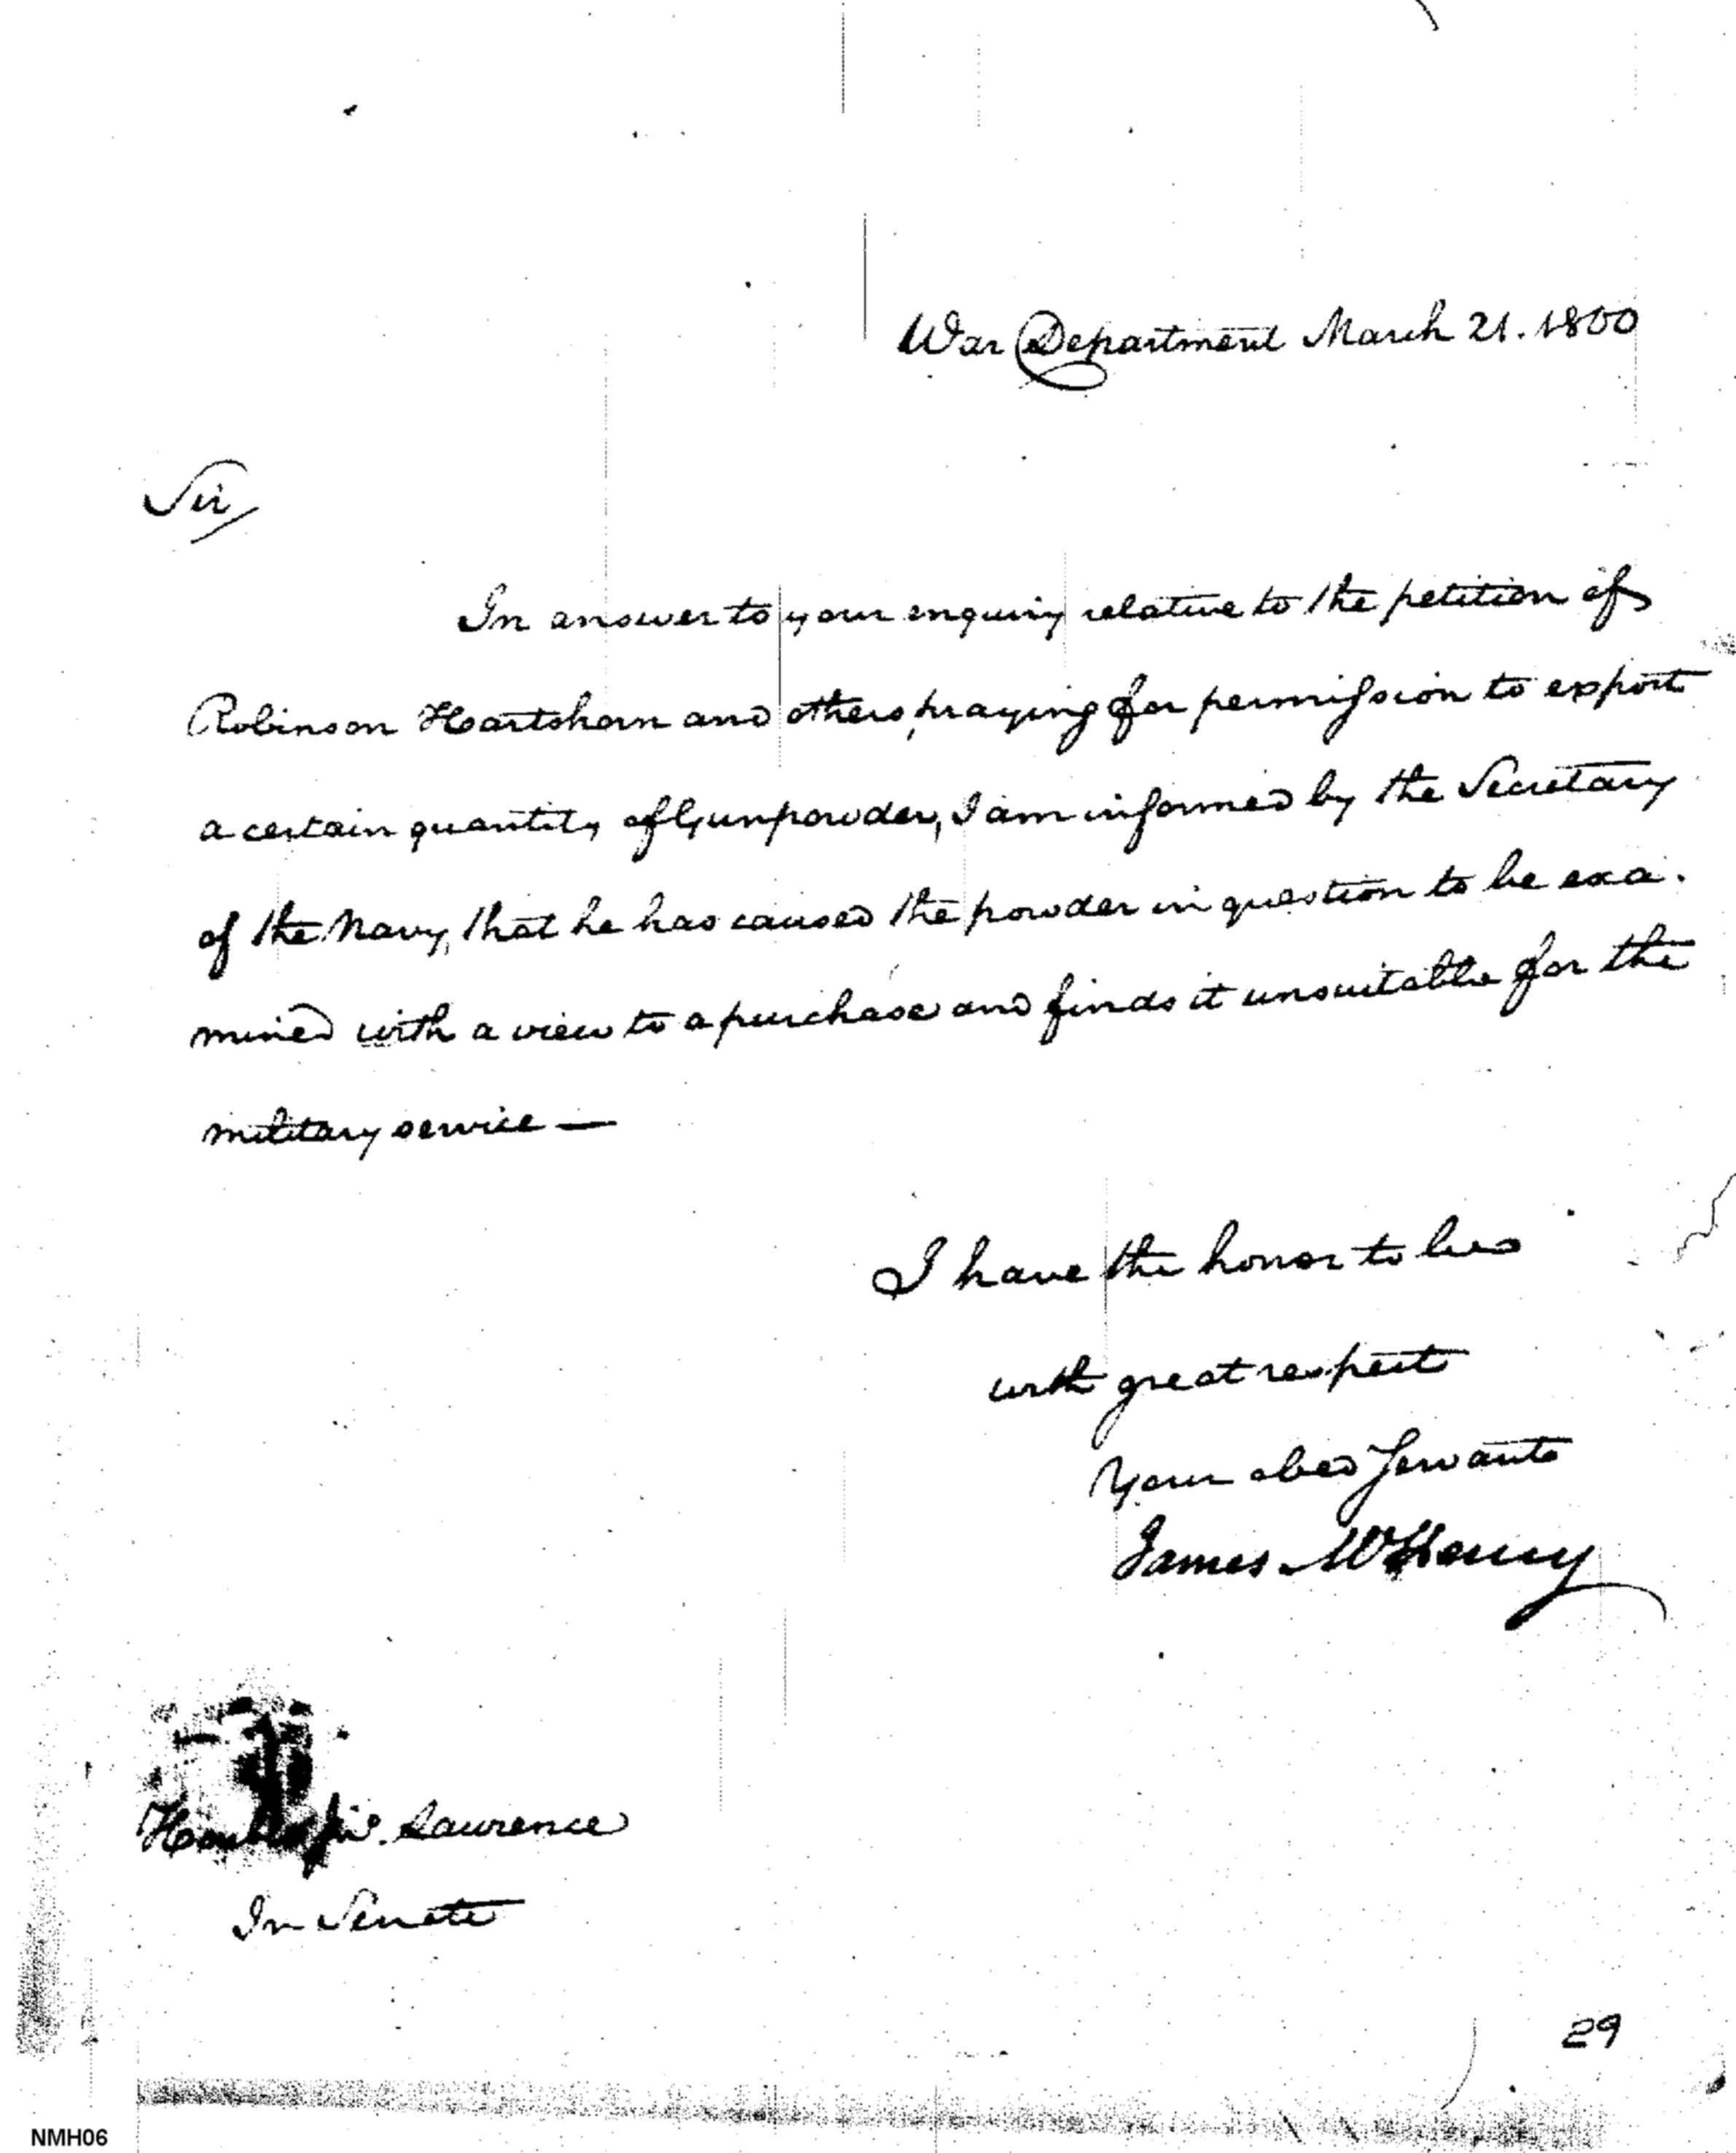 War Department March 21. 1800
Sir/
In answer to your enquiry relative to the petition of
Robinson Hartshorn and others, praying for permission to export
a certain quantity of Gunpowder, I am informed by the Secretary
of the Navy, that he has caused the powder in question to be exa.
mined with a view to a purchase and finds it unsuitable for the
military service —
I have the honor to be
with great respect
Your obed Servant
James McHenry
Lawrence
In Senate
29
NMH06